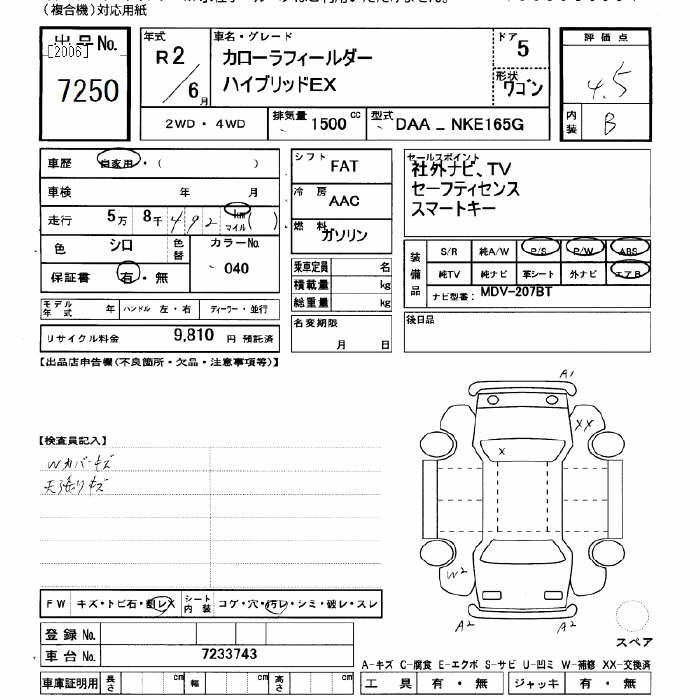 (複合機)対応用紙
出品No.
[2006]
7250
年式
R2
6月
車名・グレード
カローラフィールダー
ハイブリッドEX
ドア
5
形状
ワゴン
評価点
4.5
内装
B
2WD・4WD
排気量 1500 cc
型式 DAA - NKE165G
車歴 自家用・( )
車検 年 月
走行 5万 8千 4 9 2 km マイル ( )
色 シロ 色替 カラーNo. 040
保証書 有・無
モデル年式 年 ハンドル 左・右 ディーラー・並行
リサイクル料金 9,810 円 預託済
シフト FAT
冷房 AAC
燃料 ガソリン
乗車定員 名
積載量 kg
総重量 kg
名変期限
月 日
セールスポイント
社外ナビ、TV
セーフティセンス
スマートキー
装備品
S/R 純A/W P/S P/W ABS
純TV 純ナビ 革シート 外ナビ エアB
ナビ型番: MDV-207BT
後日品
【出品店申告欄(不良箇所・欠品・注意事項等)】
【検査員記入】
Wカバーキズ
天張りキズ
A1
XX
X
W2
A2
A2
スペア
FW キズ・トビ石・割レX
シート内装 コゲ・穴・汚レ・シミ・破レ・スレ
登録No.
車台No. 7233743
車庫証明用 長さ cm 幅 cm 高さ cm
A-キズ C-腐食 E-エクボ S-サビ U-凹ミ W-補修 XX-交換済
工具 有・無 ジャッキ 有・無